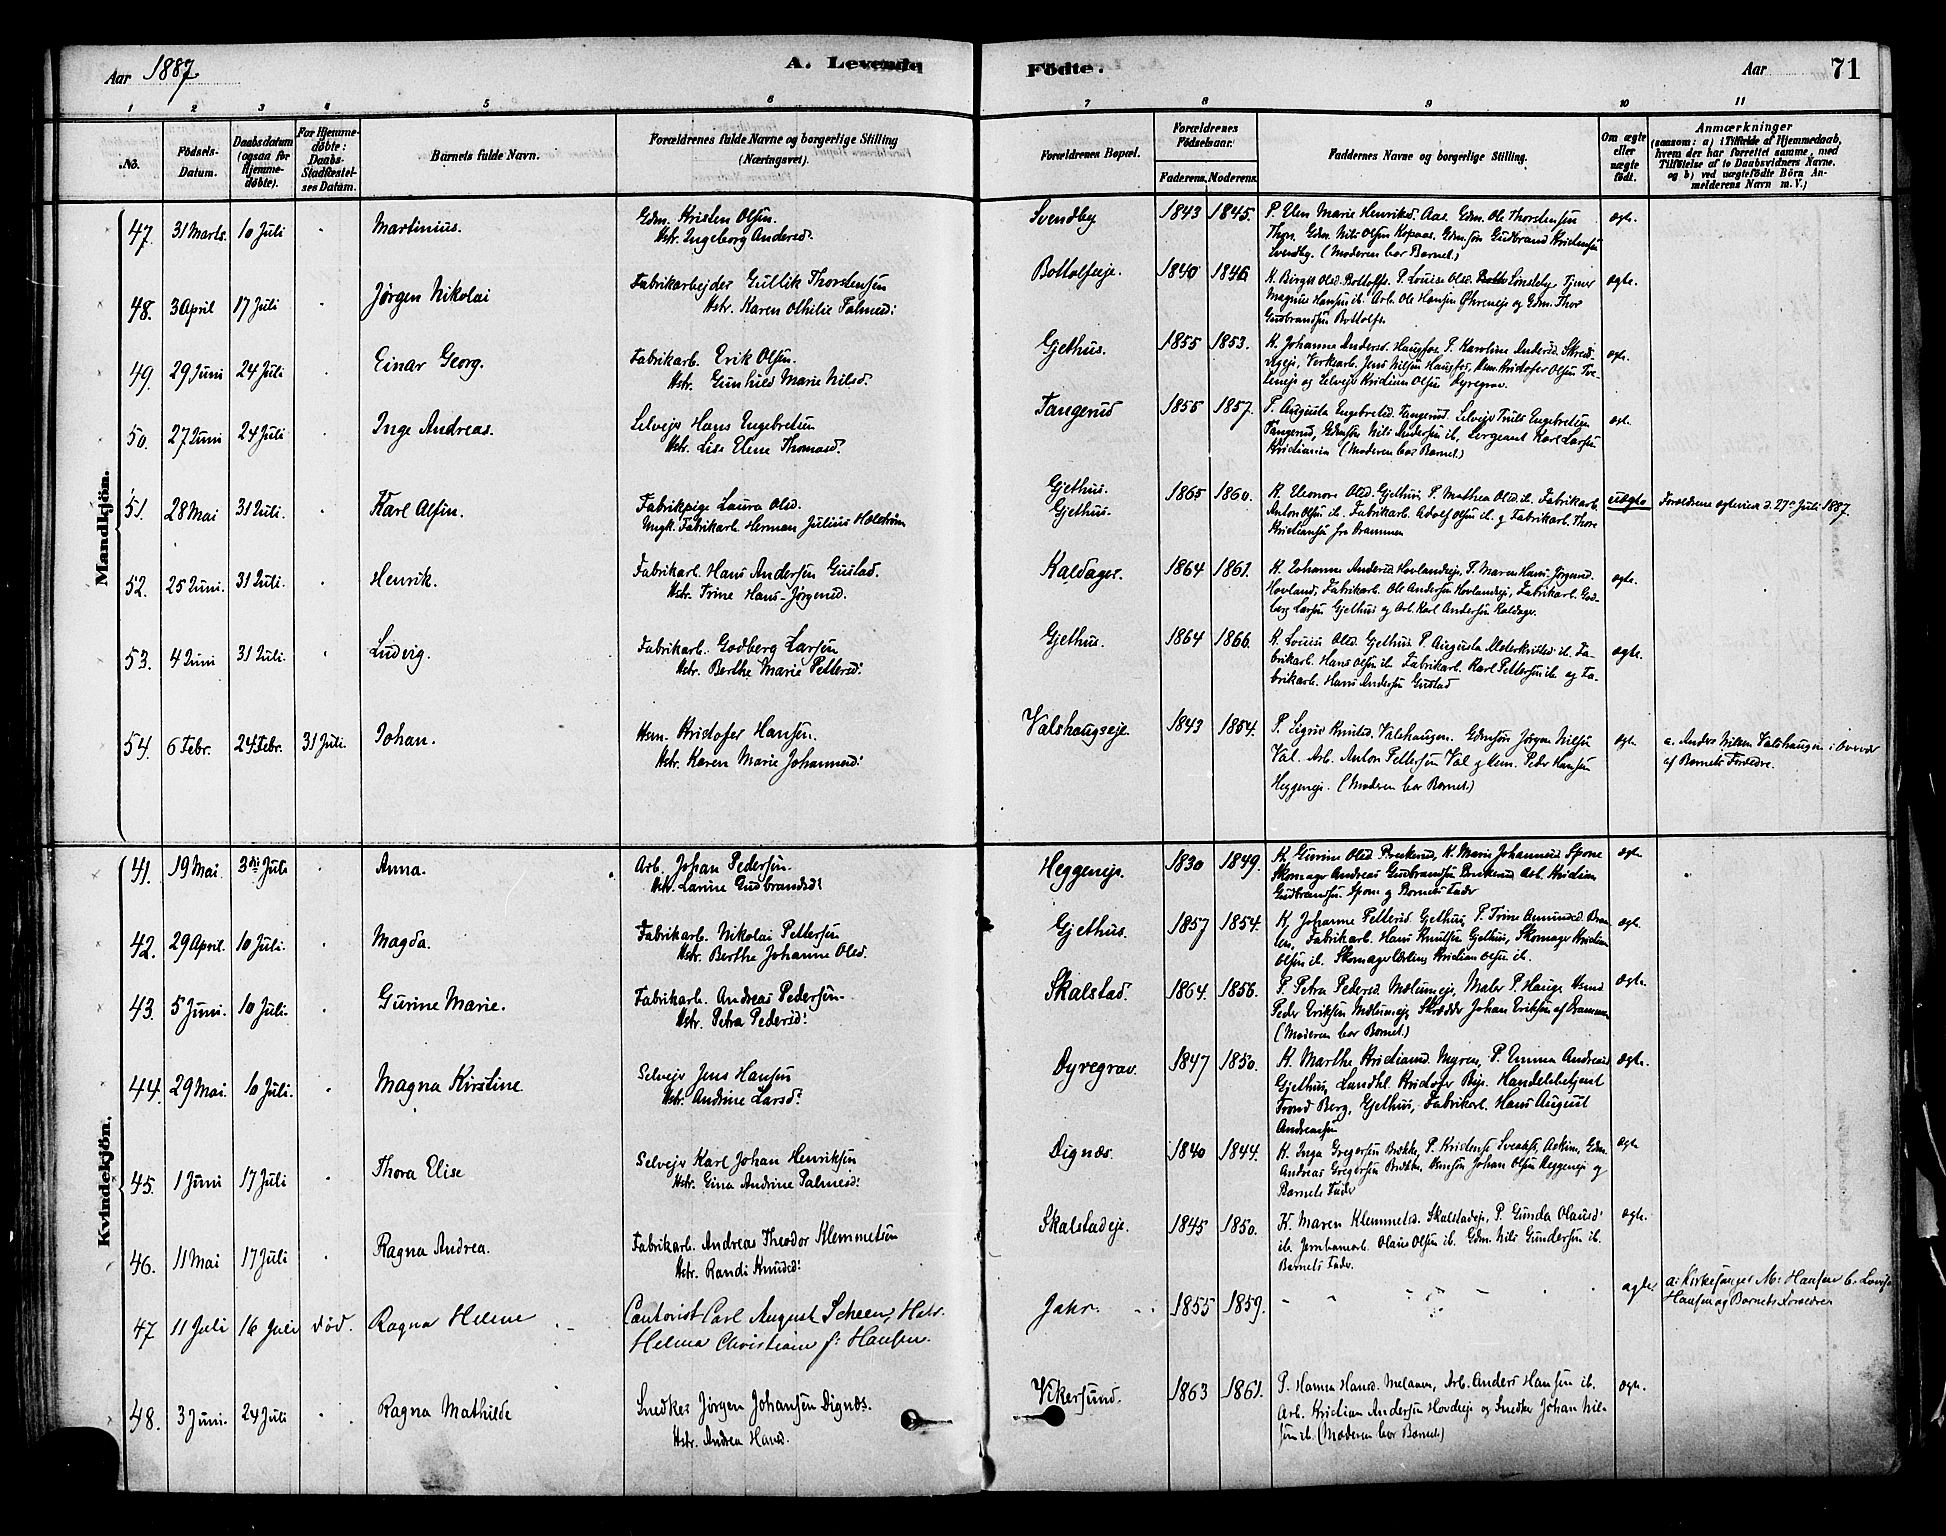 Aar 1887
A. Levende Födte.
Aar
71
1 2 3 4 5 6 7 8 9 10 11
No.
Födsels-Datum.
Daabsdatum (ogsaa for Hjemme-döbte).
For Hjemme-döbte: Daabs-Stadfæstel-ses Datum.
Barnets fulde Navn.
Forældrenes fulde Navne og borgerlige Stilling (Næringsvei).
Forældrenes Bopæl.
Forældrenes Födselsaar.
Faderens. Moderens.
Faddernes Navne og borgerlige Stilling.
Om ægte eller uægte födt.
Anmærkninger
(saasom: a) i Tilfælde af Hjemmedaab, hvem der har forrettet samme, med Tilföielse af to Daabsvidners Navne, og b) ved uægtefödte Börn Anmelderens Navn m. V.)
Mandkjön.
47. 31 Marts. 10 Juli Martinius.
Gdm. Kristen Olsen.
Hstr. Ingeborg Andersd.
Svendby 1843 1845.
P. Elen Marie Henriksd. Aas. Gdm. Ole Thorstensen
Thon. Gdm. Nils Olsen Kopaas. Gdmsøn Gudbrand Kristensen
Svendby. (Moderen bar Barnet.)
ægte.
48. 3 April 17 Juli Jørgen Nikolai
Fabrikarbejder Gullik Thorstensen
Hstr. Karen Othilie Palmesd:
Bottolfseje. 1840 1846
K. Birgit Olsd. Bottolfs. P. Louise Olsd. Lóndeby Tjener
Magnus Hansen ib. Arb. Ole Hansen Øhreneje og Gdm. Thor
Gudbrandsen Bottolfs.
ægte.
49. 29 Juni 24 Juli Einar Georg.
Fabrikarb. Erik Olsen.
Hstr. Gunhild Marie Nilsd.
Gjethus. 1855 1853.
K. Johanne Andersd. Haugfos. P. Karoline Andersd. Skred-
Jens Nilsen Haugfos, Hsm. Kristofer Olsen
og Selvejer Kristian Olsen Dyregrav.
ægte.
50. 27 Juni 24 Juli Inge Andreas.
Selvejer Hans Engebretsen
Hstr. Lise Elene Thomasd.
Tangerud 1855 1857.
P. Augusta Engebretsd. Tangerud. Selvejer Truls Engebretsen
Tangerud, Gdmsøn Nils Andersen ib, Sergeant Karl Larsen
Kristiania (Moderen bar Barnet.)
ægte.
51. 28 Mai 31 Juli. Karl Olsen.
Fabrikpige Laura Olsd.
Ungk. Fabrikarb. Herman Julius Holstrøm
Gjethus.
Gjethus. 1865 1860.
K. Eleonore Olsd. Gjethus, P. Mathea Olsd. ib. Fabrikarb.
Anton Olsen ib. Fabrikarb. Adolf Olsen ib. og Fabrikarb. Thore
Kristiansen fra Drammen
uægte
Forældrene ægteviet d. 27de Juli 1887.
52. 25 Juni. 31 Juli. Henrik.
Fabrikarb. Hans Andersen Gustad.
Hstr. Trine Hans-Jørgensd.
Kaldager. 1864 1861.
K. Johanne Andersd. Hovlandseje, P. Maren Hans-Jørgensd.
Hovland, Fabrikarb. Ole Andersen Hovlandseje, Fabrikarb. God-
berg Larsen Gjethus og Arb. Karl Andersen Kaldager.
ægte.
53. 4 Juni 31 Juli. Ludvig.
Fabrikarb. Godberg Larsen
Hstr. Berthe Marie Pettersd:
Gjethus. 1864 1866.
K. Louise Olsd. Gjethus P. Augusta ib. Fa-
brikarb. Hans Olsen ib. Fabrikarb. Karl Pettersen ib. og Fa-
brikarb. Hans Andersen Gustad
ægte.
54. 6 Febr. 24 Febr. 31 Juli. Johan.
Hsm. Kristofer Hansen.
Hstr. Karen Marie Johannesd:
Valshaugseje. 1843 1854.
P. Sigrid Knutsd. Valshaugen. Gdmsøn Jørgen Nilsen
Val. Arb. Anton Pettersen Val og Hsm. Peder Hansen
Heggeneje. (Moderen bar Barnet.)
ægte.
a. Anders Nilsen Valshaugen i Overvær
af Barnets Forældre.
Kvindekjön.
41. 19 Mai 3die Juli Anna.
Arb. Johan Pedersen.
Hstr. Larine Gudbrandsd:
Heggeneje. 1830 1849.
K. Gurine Olsd. K. Marie Johannesd. Spone
Skomager Andreas Gudbrandsen Arb. Kristian
Gudbrandsen Spone og Barnets Fader
ægte.
42. 29 April. 10 Juli. Magda.
Fabrikarb. Nikolai Pettersen
Hstr. Berthe Johanne Olsd.
Gjethus. 1857 1854.
K. Johanne Pettersd. Gjethus, P. Trine Amundsd. Bra-
ten, Fabrikarb. Hans Knutsen Gjethus, Skomager Kristian
Olsen ib. Skomagerlærling Kristian Olsen ib.
ægte.
43. 5 Juni. 10 Juli. Gurine Marie.
Fabrikarb. Andreas Pedersen.
Hstr. Petra Pedersd:
Skalstad. 1864. 1856.
P. Petra Pedersd. Mælumeje, Maler P. Hauge, Hsmd
Peder Eriksen Mælumeje Skrædder Johan Eriksen af Drammen
(Moderen bar Barnet.)
ægte.
44. 29 Mai. 10 Juli. Magna Kirstine
Selvejer Jens Hansen
Hstr. Andrine Larsd:
Dyregrav 1847 1850.
K. Marthe Kristiansd. Myren, P. Emma Andreasd
Gjethus, Landhl. Kristofer Bye. Handelsbetjent
Trond Berg, Gjethus, Fabrikarb. Hans August
Andreassen
ægte.
45. 1 Juni 17 Juli Thora Elise
Selvejer Karl Johan Henriksen
Hstr. Gina Andrine Palmesd:
Dignæs. 1840 1844.
K. Inga Gregersen Brekke, P. Kristense Askim, Gdm.
Andreas Gregersen Brekke, Hsmsøn Johan Olsen Heggeneje og
Barnets Fader
ægte
46. 11 Mai 17 Juli Ragna Andrea.
Fabrikarb. Andreas Theodor Klemmetsen
Hstr. Randi Knudsd:
Skalstadeje. 1845 1850.
K. Maren Klemmetsd. Skalstadeje, P. Gunda Olausd:
ib. Jernbanearb. Olaus Olsen ib. Gdm. Nils Gundersen ib.
Barnets Fader.
ægte.
47 11 Juli 16 Juli død. Ragna Helene
Contorist Carl August Scheen, Hstr.
Helma Christiane f: Hansen.
Jahr. 1855 1859.
ægte
a: Kirkesanger M: Hansen b. Lovise
Hansen og Barnets Forældre
48. 3 Juni. 24 Juli Ragna Mathilde
Snedker Jørgen Johansen Dignæs.
Hstr. Andrea Hansd.
Vikersund. 1863 1861.
P. Hanna Hansd. Melaaen, Arb. Anders Hansen ib.
Arb. Kristian Andersen Hovdeeje og Snedker Johan Nil-
sen ib. (Moderen bar Barnet.)
ægte.